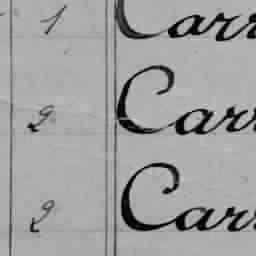 1 Carr
2 Carr
2 Carr